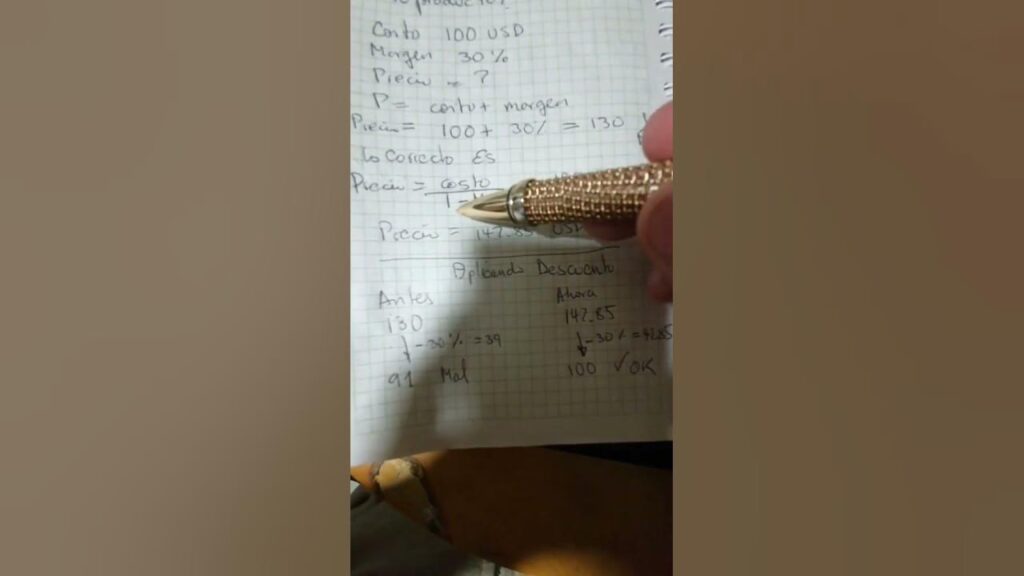 Costo 100 USD
Margen 30%
Precio = ?
P = costo + margen
Precio = 100 + 30% = 130
Lo Correcto Es
Precio = costo
1 -
Precio = 142.85 USD
Aplicando Descuento
Antes Ahora
130 142.85
-30% = 39 -30% = 42.85
91 Mal 100 ✓ OK